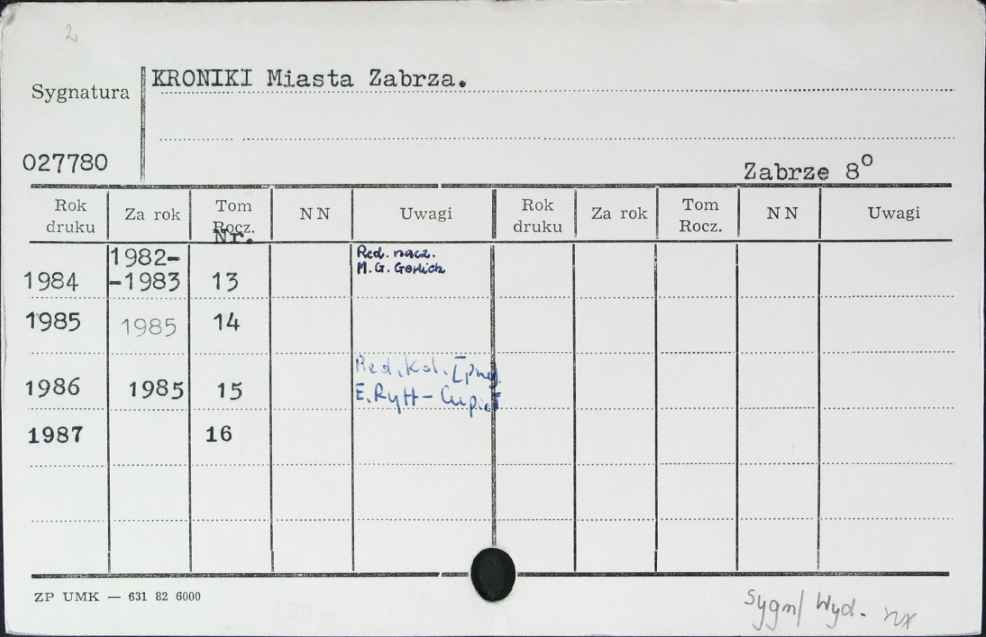 2
KRONIKI Miasta Zabrza.
Sygnatura
027780
Zabrze 8°
Rok druku Za rok Tom Rocz. Nr. NN Uwagi Rok druku Za rok Tom Rocz. NN Uwagi
1984 1982--1983 13 Red. nacz. M. G. Gerlich
1985 1985 14
1986 1985 15 Red. kol. E. Rytt-
1987 16
ZP UMK — 631 82 6000
Sygn/ Wyd.